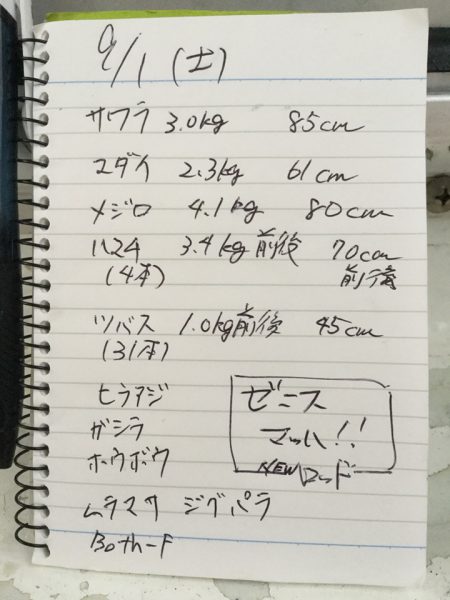 9/1 (土)
サワラ 3.0kg 85cm
マダイ 2.3kg 61cm
メジロ 4.1kg 80cm
ハマチ 3.4kg前後 70cm
(4本) 前後
ツバス 1.0kg前後 45cm
(31本)
ヒラアジ
ガシラ
ホウボウ
ゼニス
マッハ!!
NEWロッド
ムラマサ ジグパラ
Both-F